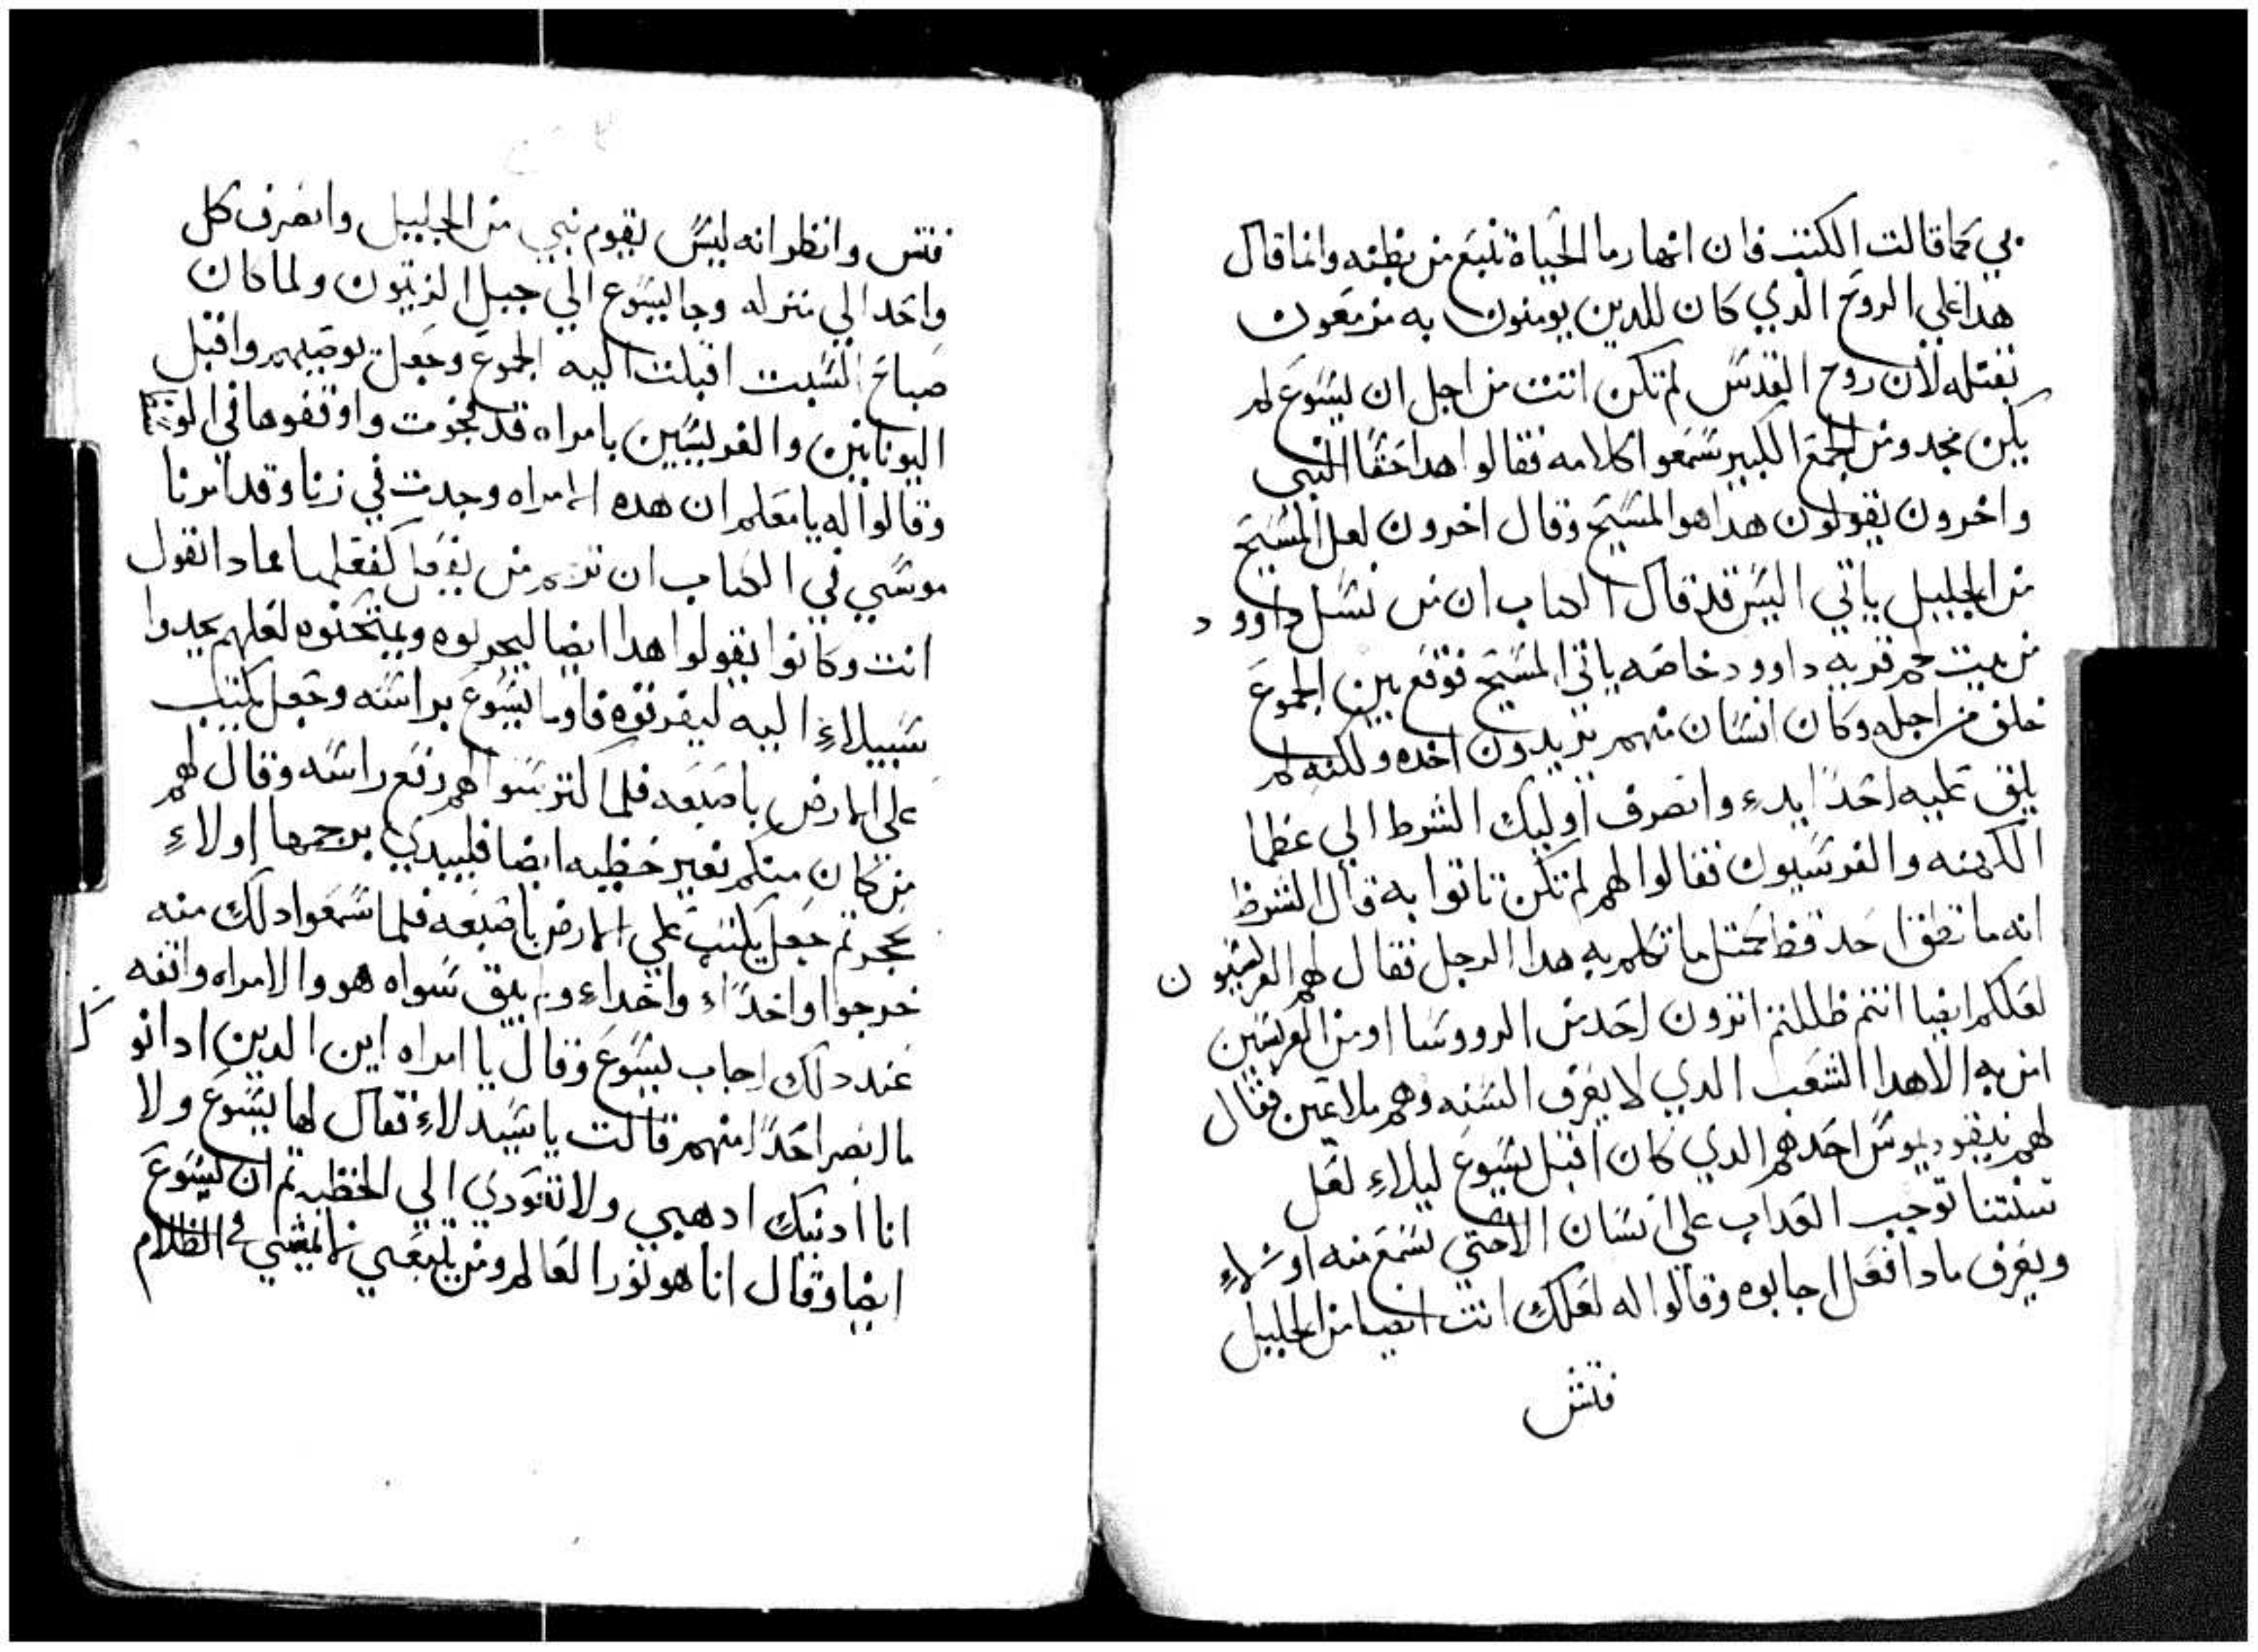 بي كما قالت الكتب فان انهار ما الحياة تنبع من بطنه وانما قال
هدا علي الروح الدي كان للدين يومنون به مزمعون
بقتله لان روح القدس لم تكن اتت من اجل ان يسوع لم
يكن مجد ومن الجمع الكبير سمعوا كلامه فقالوا هدا حقا النبي
واخرون يقولون هدا هو المسيح وقال اخرون لعل المسيح
من الجليل ياتي اليس قد قال الكتاب ان من نسل داوود
من بيت لحم قريه داوود خاصه ياتي المسيح فوقع بين الجموع
خلف من اجله وكان انسان منهم يريدون اخده ولكنه لم
يلق عليه احدا يدء وانصرف اوليك الشرط الي عظما
الكهنه والفرسيون فقالوا لهم لم تكن تاتوا به قال الشرط
انه ما نطق احد قط كمتل ما تكلم به هدا الرجل فقال لهم الفريسيون
لعلكم ايضا انتم ظللتم اترون احد من الرووسا او من الفريسين
امن به الا هدا الشعب الدي لا يعرف السنه وهم ملاعين فقال
لهم نيقوديموس احدهم الدي كان اقبل يسوع ليلاء لعل
سنتنا توجب العداب علي انسان الا حتي نسمع منه اولاء
ويعرف مادا فعل اجابوه وقالوا له لعلك انت ايضا من الجليل
فتش
فتش وانظر انه ليس يقوم نبي من الجليل وانصرف كل
واحد الي منزله وجا ليسوع الي جبل الزيتون ولما كان
صباح السبت اقبلت اليه الجموع وجعل يوصيهم واقبل
اليونانين والفريسيين بامراه قد فجرت واوقفوها في الوسط
وقالوا له يا معلم ان هده الامراه وجدت في زنا وقد امرنا
موسي في الكتاب ان نرجم من يفعل كفعلها فمادا تقول
انت وكانوا يقولوا هدا ايضا ليجربوه ويمتحنوه لعلهم يجدوا
سبيلاء اليه ليقرفوه فاوما يسوع براسه وجعل يكتب
علي الارض باصبعه فلما اكتر سوالهم رفع راسه وقال لهم
من كان منكم بغير خطيه ايضا فليبدي برجمها اولاء
بحجر تم جعل يكتب علي الارض باصبعه فلما سمعوا دلك منه
خرجوا واحداء واحداء ولم يبق سواه هو والامراه واقفه
عند دلك اجاب يسوع وقال يا امراه اين الدين ادانوك
ما ابصر احدا منهم قالت يا سيد لاء فقال لها يسوع ولا
انا ادنيك ادهبي ولا تعودي الي الخطيه تم ان يسوع
ايضا وقال انا هو نور العالم ومن يتبعني لا يمشي في الظلام